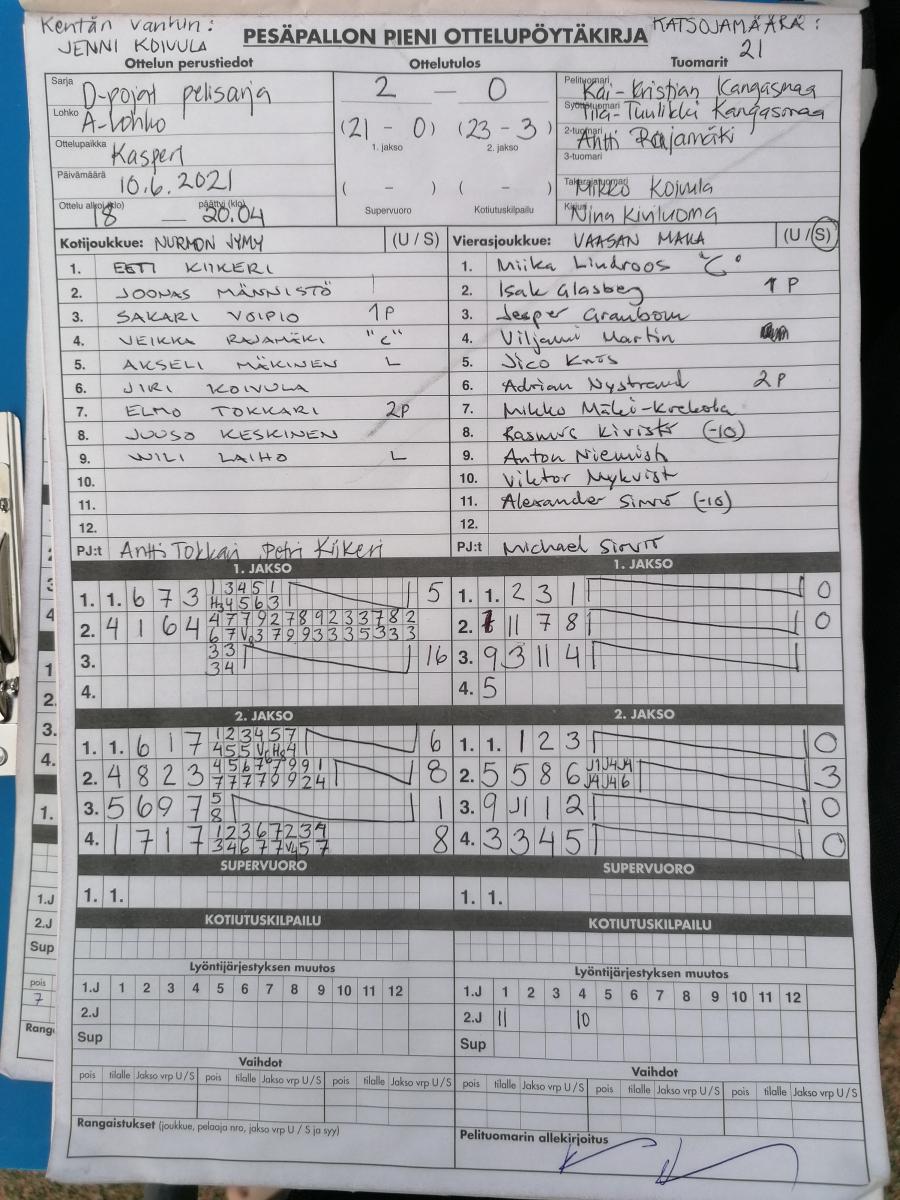 Kentän vanhin:
JENNI KOIVULA
PESÄPALLON PIENI OTTELUPÖYTÄKIRJA
KATSOJAMÄÄRÄ:
21
Ottelun perustiedot
Ottelutulos
Tuomarit
Sarja D-pojat pelisarja
Lohko A-lohko
Ottelupaikka Kasperi
Päivämäärä 10.6.2021
Ottelu alkoi (klo) 18 — päättyi (klo) 20.04
2 — 0
(21 - 0) (23 - 3)
1. jakso 2. jakso
( - ) ( - )
Supervuoro Kotiutuskilpailu
Pelituomari Kai-Kristian Kangasmaa
Syöttötuomari Tiia-Tuulikki Kangasmaa
2-tuomari Antti Rajamäki
3-tuomari
Takarajatuomari Mikko Koivula
Kirjuri Nina Kiviluoma
Kotijoukkue: NURMON JYMY (U / S)
1. EETI KIIKERI
2. JOONAS MÄNNISTÖ
3. SAKARI VOIPIO 1P
4. VEIKKA RAJAMÄKI "C"
5. AKSELI MÄKINEN L
6. JIRI KOIVULA
7. ELMO TOKKARI 2P
8. JUUSO KESKINEN
9. WILI LAIHO L
10.
11.
12.
PJ:t Antti Tokkari Petri Kiikeri
Vierasjoukkue: VAASAN MAILA (U / S)
1. Miika Lindroos "C"
2. Isak Glasberg 1P
3. Jesper Granbom
4. Viljami Martin
5. Jico Knos
6. Adrian Nystrand 2P
7. Mikko Mäki-Krekola
8. Rasmus Kivistö (-10)
9. Anton Niemistö
10. Viktor Nykvist
11. Alexander Simiö (-10)
12.
PJ:t Michael
1. JAKSO
1. 1. 6 7 3 1 3 4 5 1 5
H3 4 5 6 3
2. 4 1 6 4 4 7 7 9 2 7 8 9 2 3 3 7 8 2
6 7 V9 3 7 9 9 3 3 3 5 3 3 3
3. 3 3 16
3 4
4.
1. JAKSO
1. 1. 2 3 1 0
2. 11 7 8 0
3. 9 3 11 4
4. 5
2. JAKSO
1. 1. 6 1 7 1 2 3 4 5 7 6
2. 4 8 2 3 4 5 6 7 7 9 9 1 8
7 7 7 7 9 9 2 4
3. 5 6 9 7 5 1
8
4. 1 7 1 7 1 2 3 6 7 2 3 4 8
3 4 6 7 7 V4 5 7
2. JAKSO
1. 1. 1 2 3 0
2. 5 5 8 6 J1 J4 J4 3
J4 J4 6
3. 9 J1 1 2 0
4. 3 3 4 5 0
SUPERVUORO
1. 1.
SUPERVUORO
1. 1.
KOTIUTUSKILPAILU
KOTIUTUSKILPAILU
Lyöntijärjestyksen muutos
1.J 1 2 3 4 5 6 7 8 9 10 11 12
2.J
Sup
Lyöntijärjestyksen muutos
1.J 1 2 3 4 5 6 7 8 9 10 11 12
2.J 11 10
Sup
Vaihdot
pois tilalle Jakso vrp U / S pois tilalle Jakso vrp U / S pois tilalle Jakso vrp U / S
Vaihdot
pois tilalle Jakso vrp U / S pois tilalle Jakso vrp U / S pois tilalle Jakso vrp U / S
Rangaistukset (joukkue, pelaaja nro, jakso vrp U / S ja syy)
Pelituomarin allekirjoitus